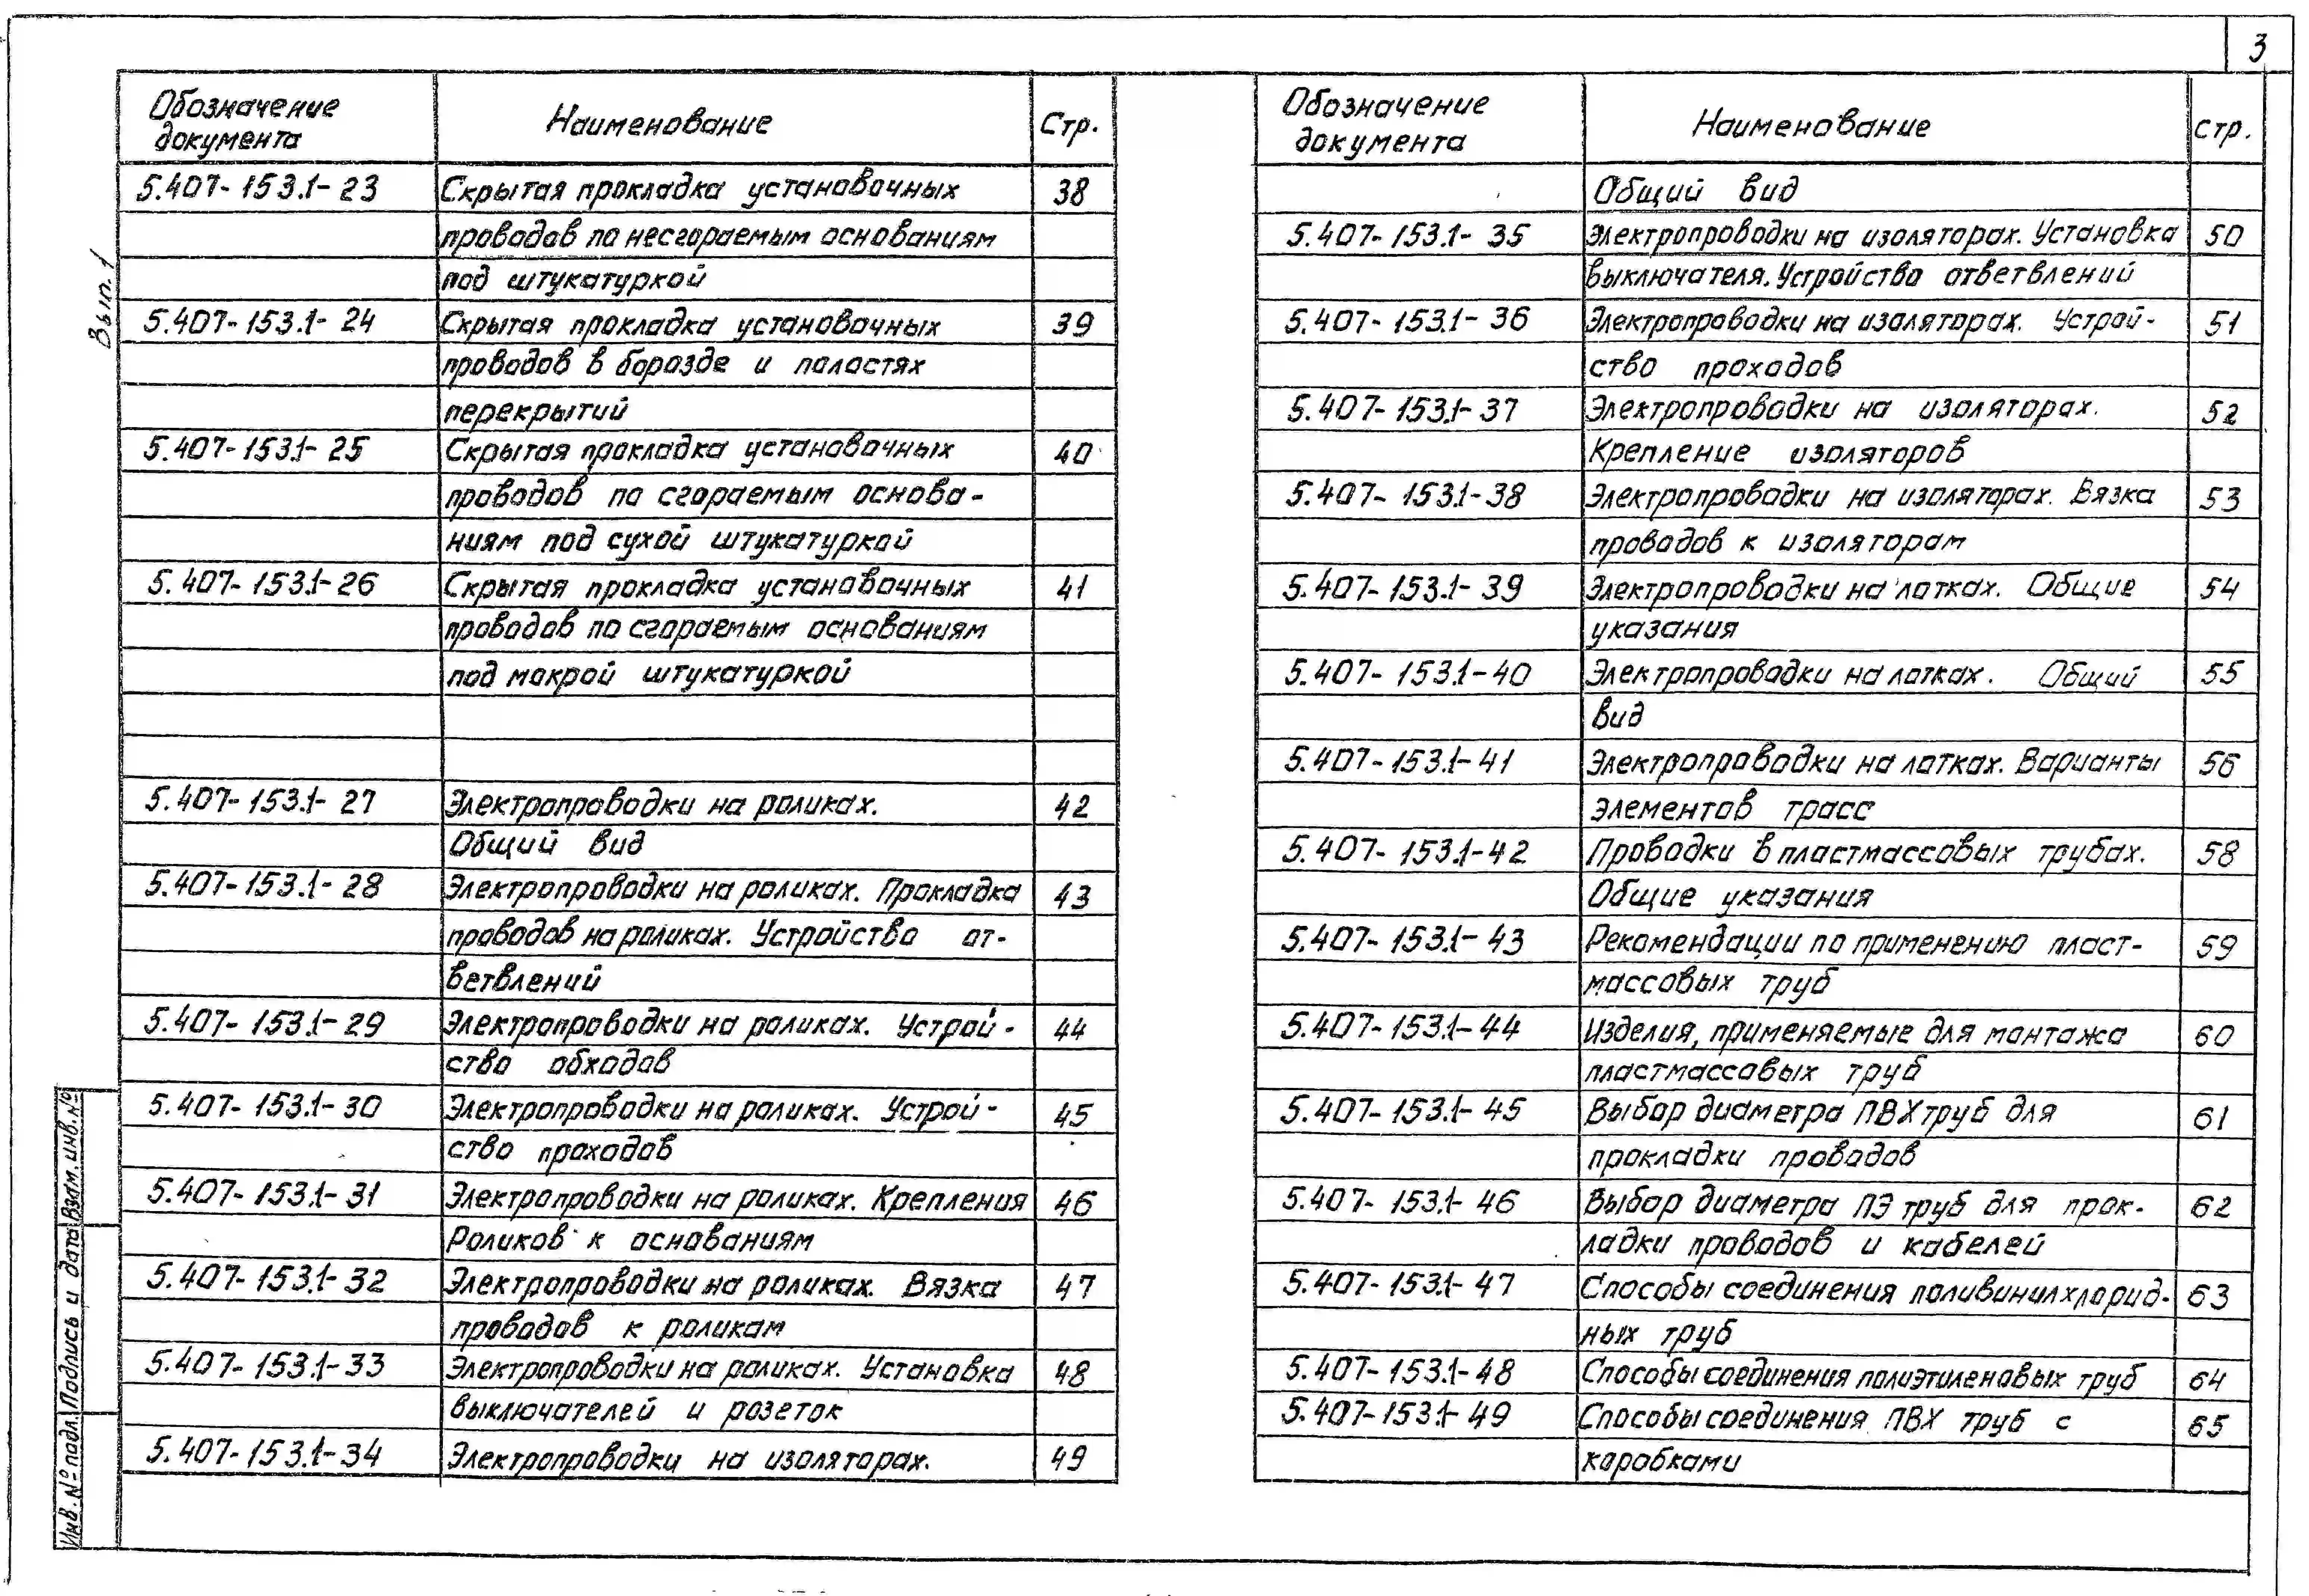 3
Вып. 1
Обозначение документа Наименование Стр.
5.407-153.1-23 Скрытая прокладка установочных 38
проводов по несгораемым основаниям
под штукатуркой
5.407-153.1-24 Скрытая прокладка установочных 39
проводов в борозде и полостях
перекрытий
5.407-153.1-25 Скрытая прокладка установочных 40
проводов по сгораемым основа-
ниям под сухой штукатуркой
5.407-153.1-26 Скрытая прокладка установочных 41
проводов по сгораемым основаниям
под мокрой штукатуркой
5.407-153.1-27 Электропроводки на роликах. 42
Общий вид
5.407-153.1-28 Электропроводки на роликах. Прокладка 43
проводов на роликах. Устройство от-
ветвлений
5.407-153.1-29 Электропроводки на роликах. Устрой- 44
ство обходов
5.407-153.1-30 Электропроводки на роликах. Устрой- 45
ство проходов
5.407-153.1-31 Электропроводки на роликах. Крепления 46
Роликов к основаниям
5.407-153.1-32 Электропроводки на роликах. Вязка 47
проводов к роликам
5.407-153.1-33 Электропроводки на роликах. Установка 48
выключателей и розеток
5.407-153.1-34 Электропроводки на изоляторах. 49
Обозначение документа Наименование стр.
Общий вид
5.407-153.1-35 Электропроводки на изоляторах. Установка 50
выключателя. Устройство ответвлений
5.407-153.1-36 Электропроводки на изоляторах. Устрой- 51
ство проходов
5.407-153.1-37 Электропроводки на изоляторах. 52
Крепление изоляторов
5.407-153.1-38 Электропроводки на изоляторах. Вязка 53
проводов к изоляторам
5.407-153.1-39 Электропроводки на лотках. Общие 54
указания
5.407-153.1-40 Электропроводки на лотках. Общий 55
вид
5.407-153.1-41 Электропроводки на лотках. Варианты 56
элементов трасс
5.407-153.1-42 Проводки в пластмассовых трубах. 58
Общие указания
5.407-153.1-43 Рекомендации по применению пласт- 59
массовых труб
5.407-153.1-44 Изделия, применяемые для монтажа 60
пластмассовых труб
5.407-153.1-45 Выбор диаметра ПВХ труб для 61
прокладки проводов
5.407-153.1-46 Выбор диаметра ПЭ труб для прок- 62
ладки проводов и кабелей
5.407-153.1-47 Способы соединения поливинилхлорид- 63
ных труб
5.407-153.1-48 Способы соединения полиэтиленовых труб 64
5.407-153.1-49 Способы соединения ПВХ труб с 65
коробками
Инв. № подл. Подпись и дата Взам. инв. №